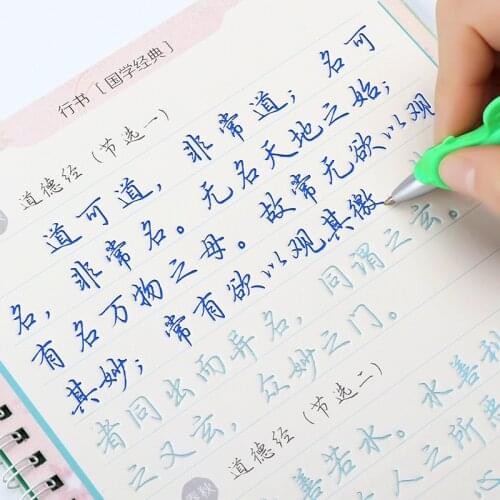 行书［国学经典］
道德经（节选一）
道可道，非常道；名可
名，非常名。无名天地之始；
有名万物之母。故常无欲以观
其妙；常有欲以观其徼
者同出而异名，同谓之玄。
之又玄，众妙之门。
道德经（节选二）
善若水。水善利
人之所